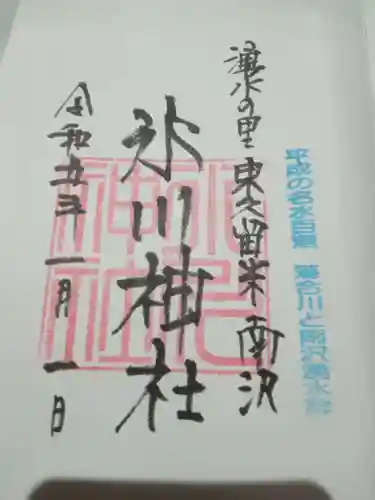 平成の名水百選 落合川と南沢湧水群
湧水の里 東久留米 南沢
氷川神社
令和五年一月一日
氷川神社